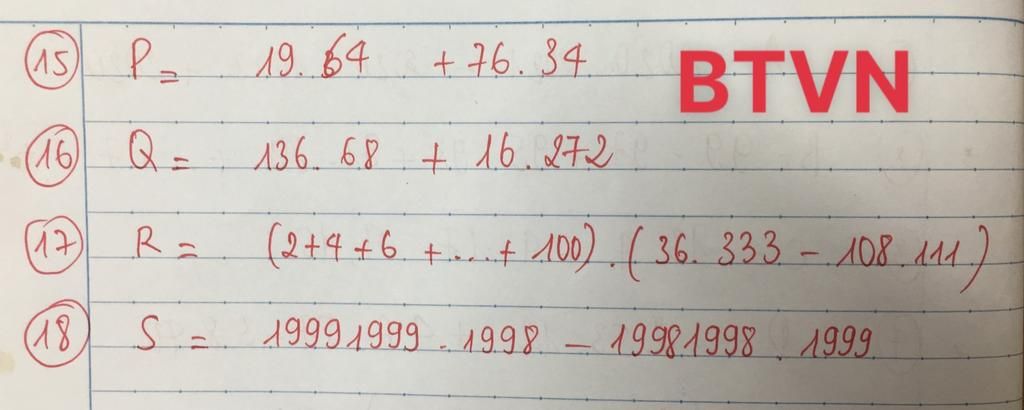 15 P = 19.64 + 76.34 BTVN
16 Q = 136.68 + 16.272
17 R = (2+4+6 +...+ 100).(36.333 - 108.111)
18 S = 19991999.1998 - 19981998.1999